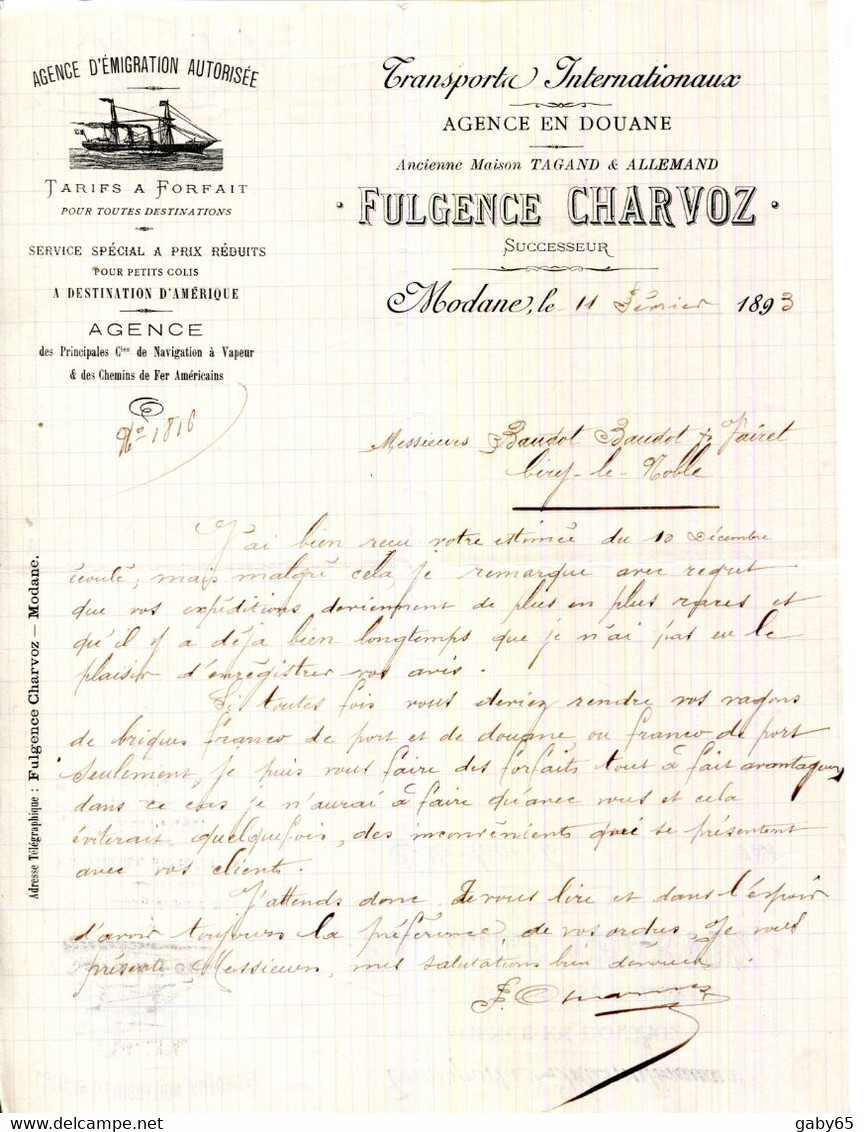 AGENCE D'ÉMIGRATION AUTORISÉE
TARIFS A FORFAIT
POUR TOUTES DESTINATIONS
SERVICE SPÉCIAL A PRIX RÉDUITS
POUR PETITS COLIS
A DESTINATION D'AMÉRIQUE
AGENCE
des Principales Cies de Navigation à Vapeur
& des Chemins de Fer Américains
No 1816
Transports Internationaux
AGENCE EN DOUANE
Ancienne Maison TAGAND & ALLEMAND
· FULGENCE CHARVOZ ·
SUCCESSEUR
Modane, le 11 Février 1893
Messieurs Baudot Baudot & Fairet
Cirey-le-Noble
J'ai bien reçu votre estimée du 10 Décembre
écoulé, mais malgré cela, je remarque avec regret
que vos expéditions deviennent de plus en plus rares et
qu'il y a déja bien longtemps que je n'ai pas eu le
plaisir d'enrégistrer vos avis.
Si toutes fois vous deviez rendre vos vagons
de briques franco de port et de douane ou franco de port
seulement, je puis vous faire des forfaits tout à fait avantageux
dans ce cas je n'aurai à faire qu'avec vous et cela
éviterait quelquefois, des inconvénients qui se présentent
avec vos clients.
J'attends donc de vous lire et dans l'espoir
d'avoir toujours la préférence, de vos ordres, je vous
présente Messieurs, mes salutations bien dévouées
F. Charvoz
Adresse Télégraphique : Fulgence Charvoz — Modane.
www.delcampe.net
gaby65